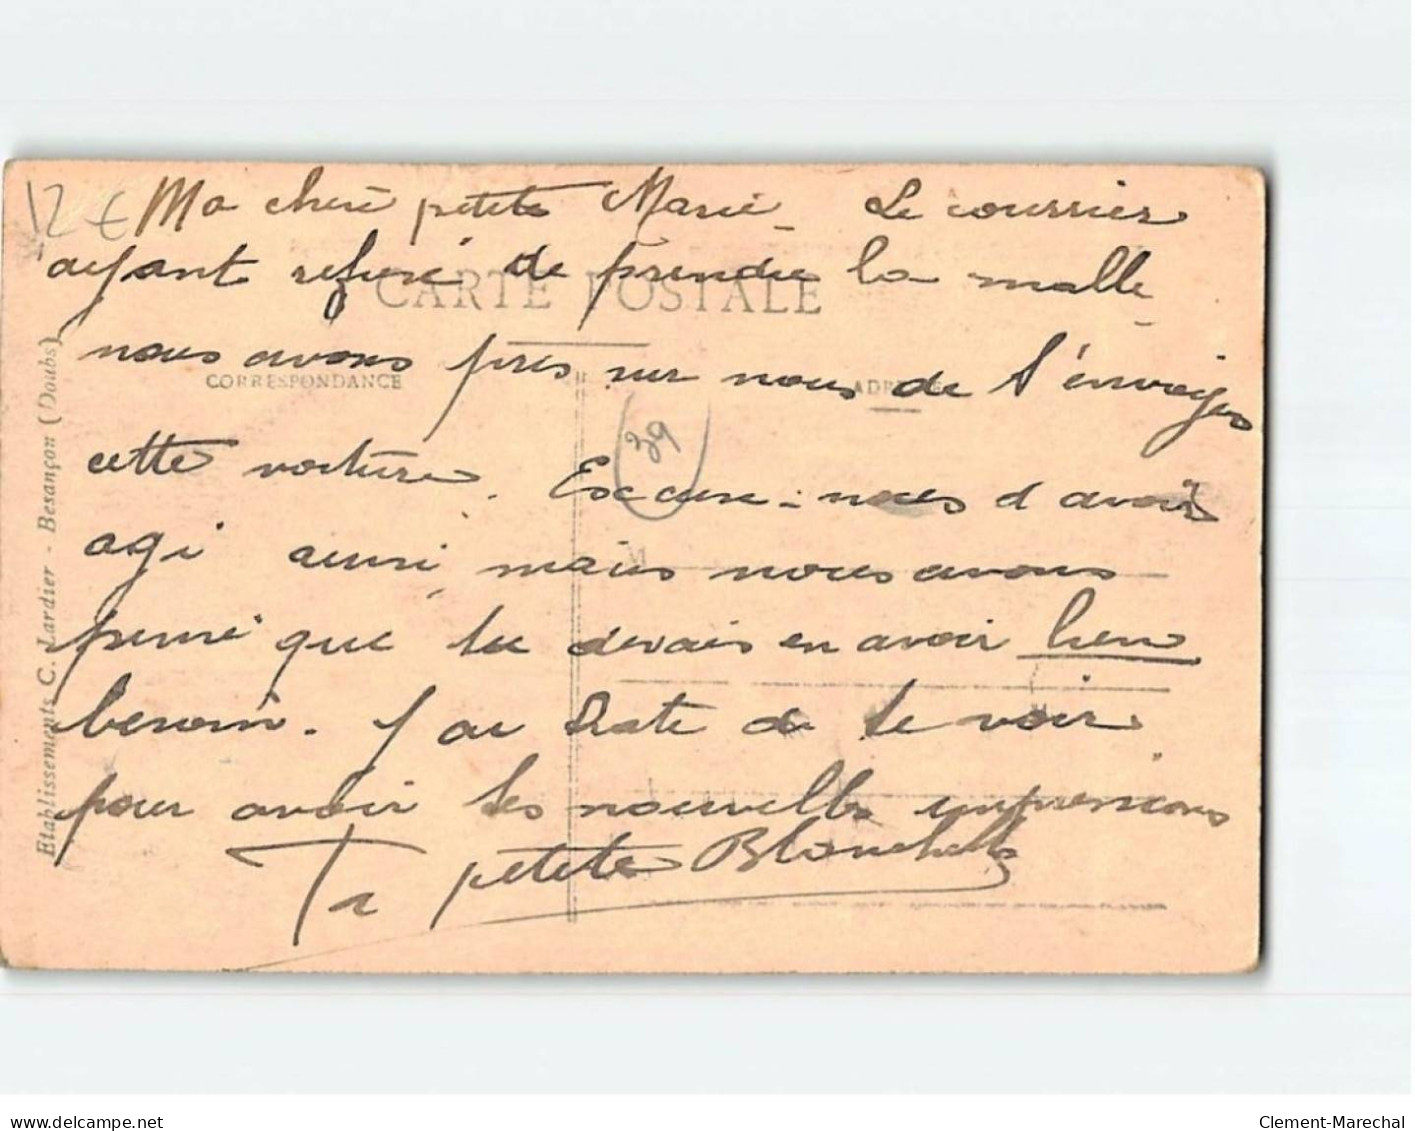 12 €
Ma chere petite Marie - Le courrier
ayant refusé de prendre la malle
CARTE POSTALE
nous avons pris sur nous de t'envoyer
CORRESPONDANCE
ADRESSE
cette voiture. Excuse-nous d'avoir
39
agi ainsi, mais nous avons
pensé que tu devais en avoir bien
besoin. J'ai hate de te voir
pour avoir tes nouvelles impressions
Ta petite Blanchette
Etablissements C. Lardier - Besançon (Doubs)
www.delcampe.net
Clement-Marechal